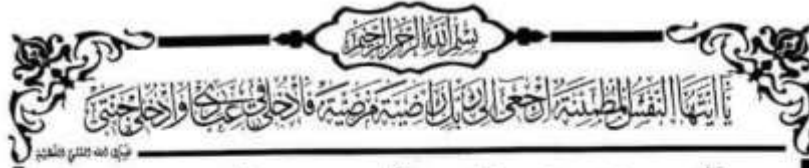 بسم الله الرحمن الرحيم
يا أيتها النفس المطمئنة ارجعي إلى ربك راضية مرضية فادخلي في عبادي وادخلي جنتي
صدق الله العلي العظيم